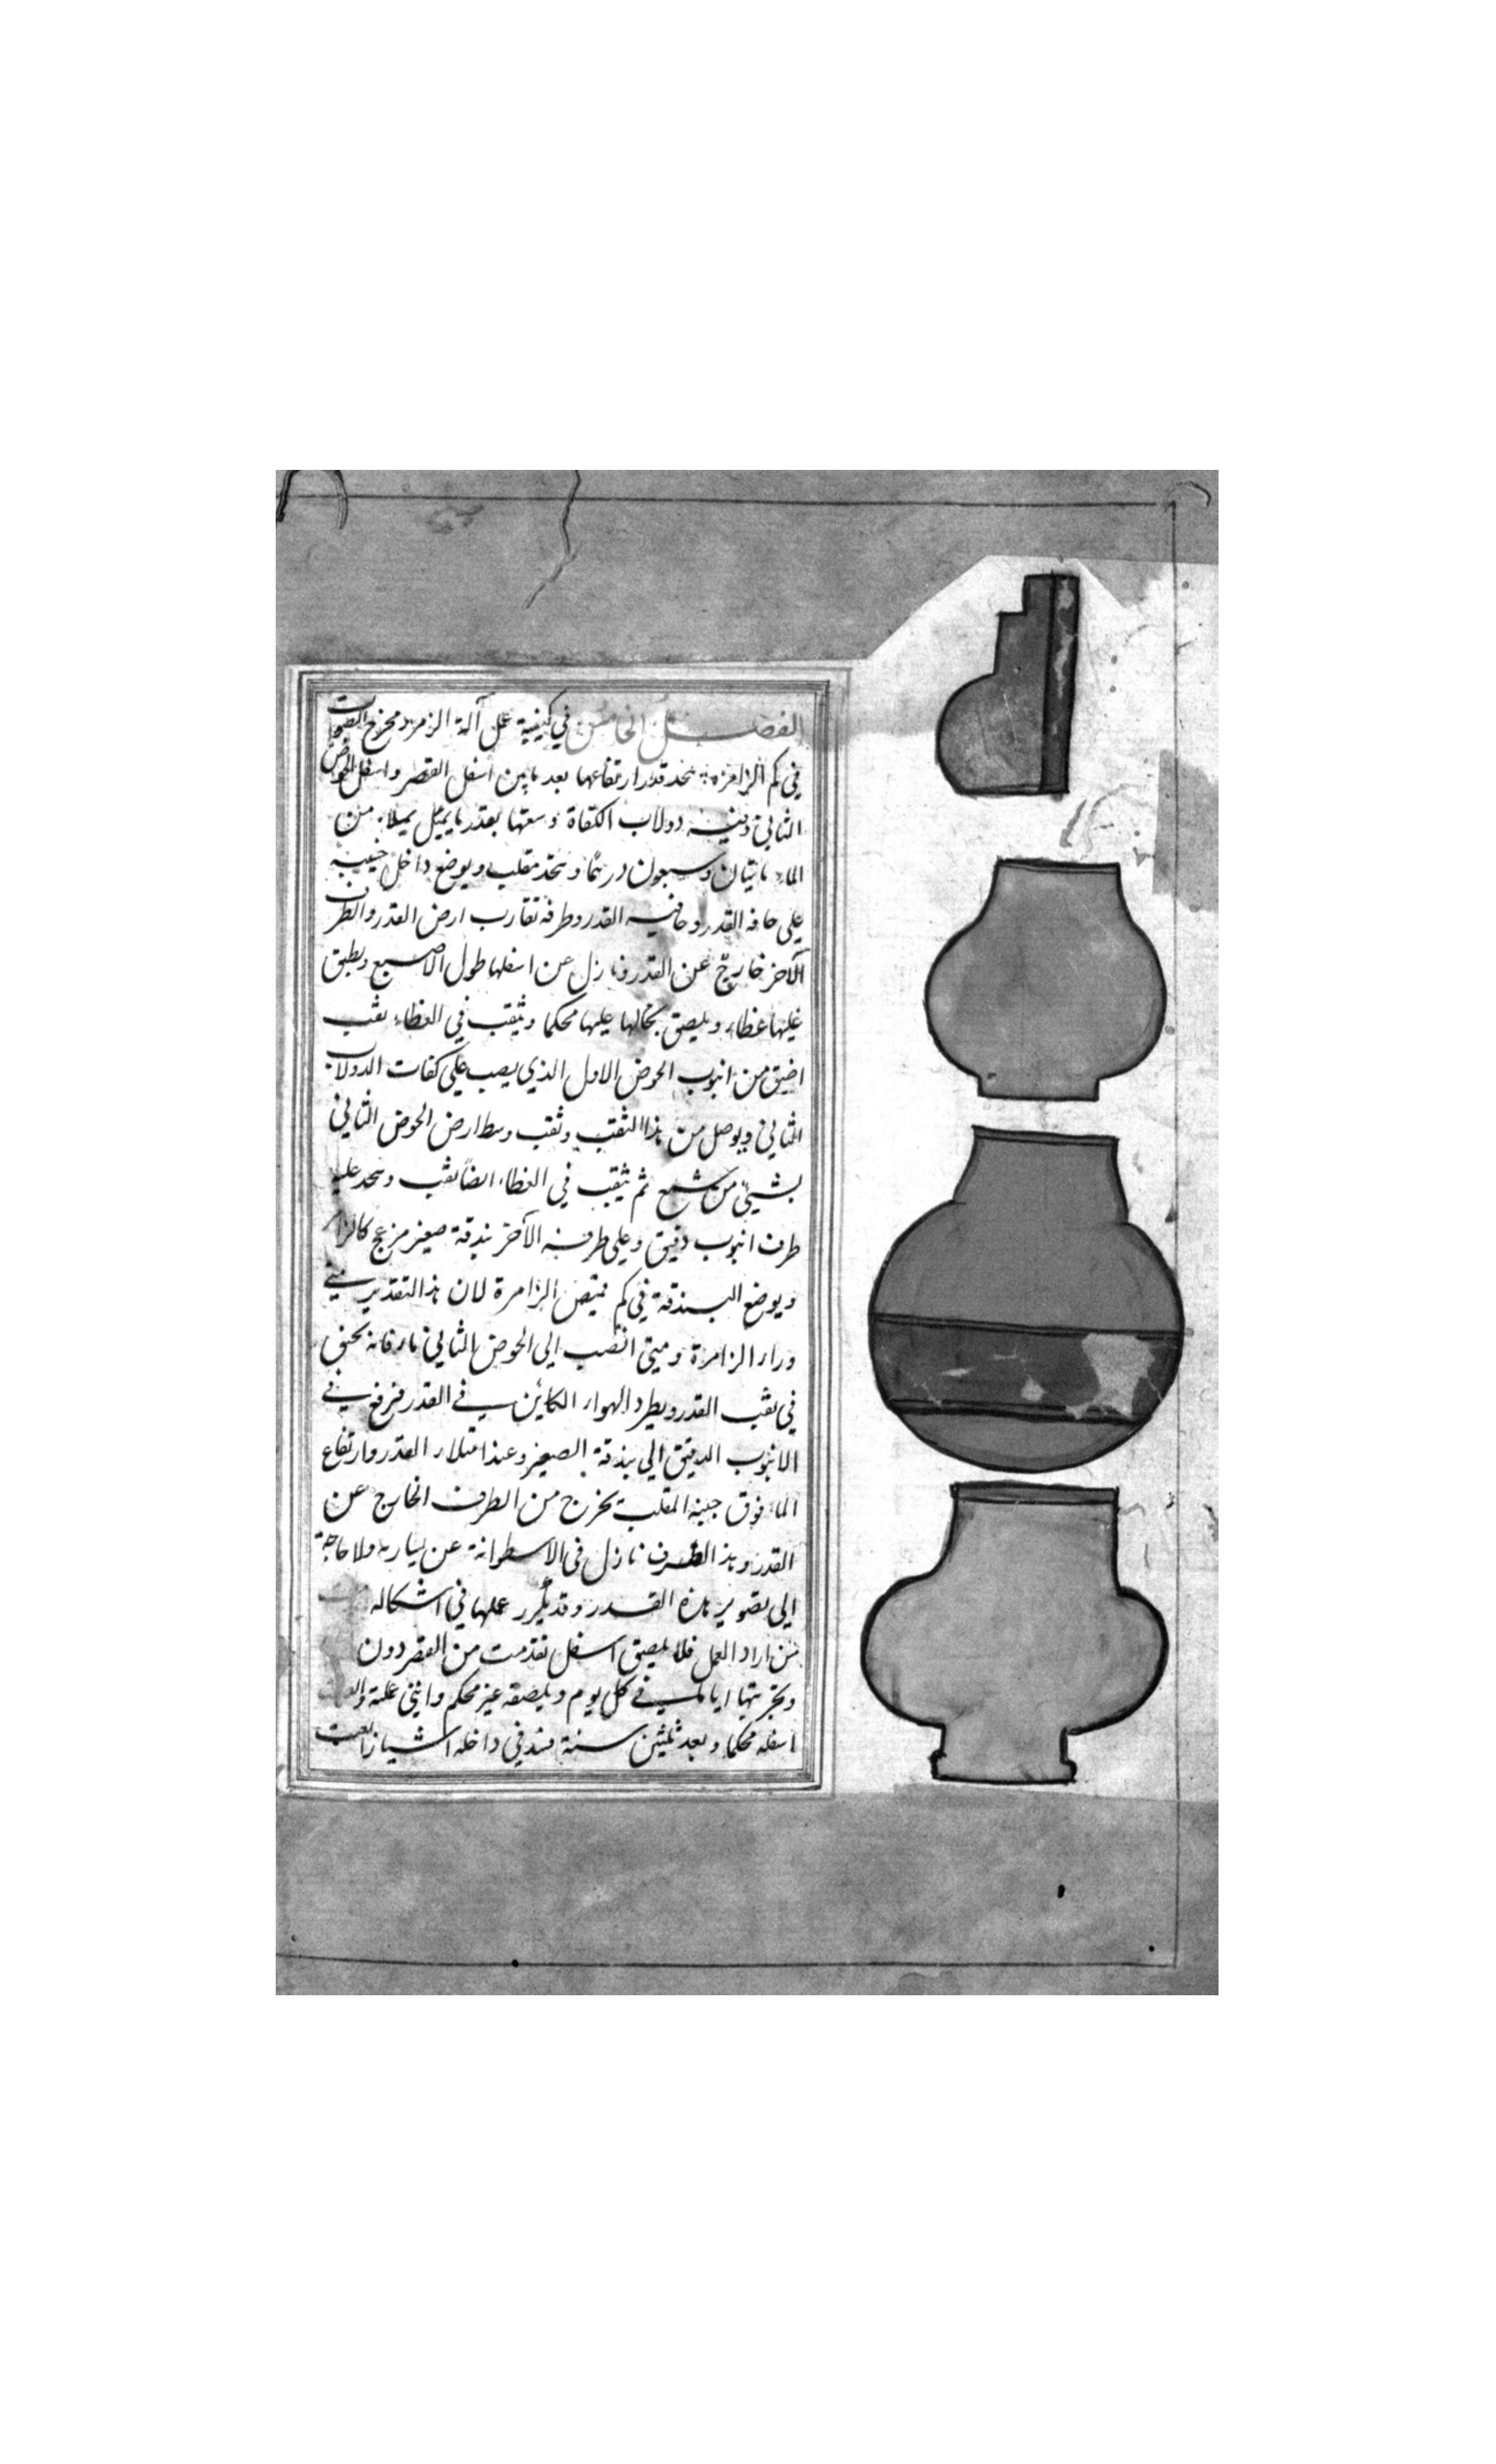 الفصل الخامس في كيفية عمل آلة الزمر ومخرج الصوت
في كم الزامرة يتخذ قدر ارتفاعها بعد ما بين اسفل القصر واسفل الحوض
الثاني وفيه دولاب الكفاة وسعتها بقدر ما يمثل يملا من
الماء مايتان وسبعون درهما ويتخذ مقلب ويوضع داخل جنيبه
على حافه القدر وحافيه القدر وطرفه تقارب ارض القدر والطرف
الآخر خارج عن القدر ونازل عن اسفلها طول الاصبع ويطبق
عليها غطاء ويلصق بحالها عليها محكما ويثقب في الغطاء ثقب
اضيق من انبوب الحوض الاول الذي يصب على كفات الدولاب
الثاني ويوصل من هذا الثقب وثقب وسط ارض الحوض الثاني
بشيئ من شمع ثم يثقب في الغطاء ايضاً ثقب ويتخذ عليه
طرف انبوب دقيق وعلى طرفه الآخر بندقة صفير مزعج كالزامر
ويوضع البندقة في كم قميص الزامرة لان هذا التقدير يبقى
وراء الزامرة ومتى انصب الى الحوض الثاني ماء فانه يختنق
في ثقب القدر ويطرد الهواء الكاين في القدر فترفع في
الانبوب الدقيق الى بندقة الصفير وعند امتلاء القدر وارتفاع
الماء فوق جنبة المقلب يخرج من الطرف الخارج عن
القدر وهذا الطرف نازل في الاسطوانة عن يساره ولا حاجة
الى تصوير هذه القدر وقد تكرر عملها في اشكاله
من اراد العمل فلا يلصق اسفل تقدمت من القصر دون
وتجربتها اياما في كل يوم ويلصقه غير محكم وانني عملته
اسفله محكما وبعد ثلثين سنة فسد في داخله اشيا